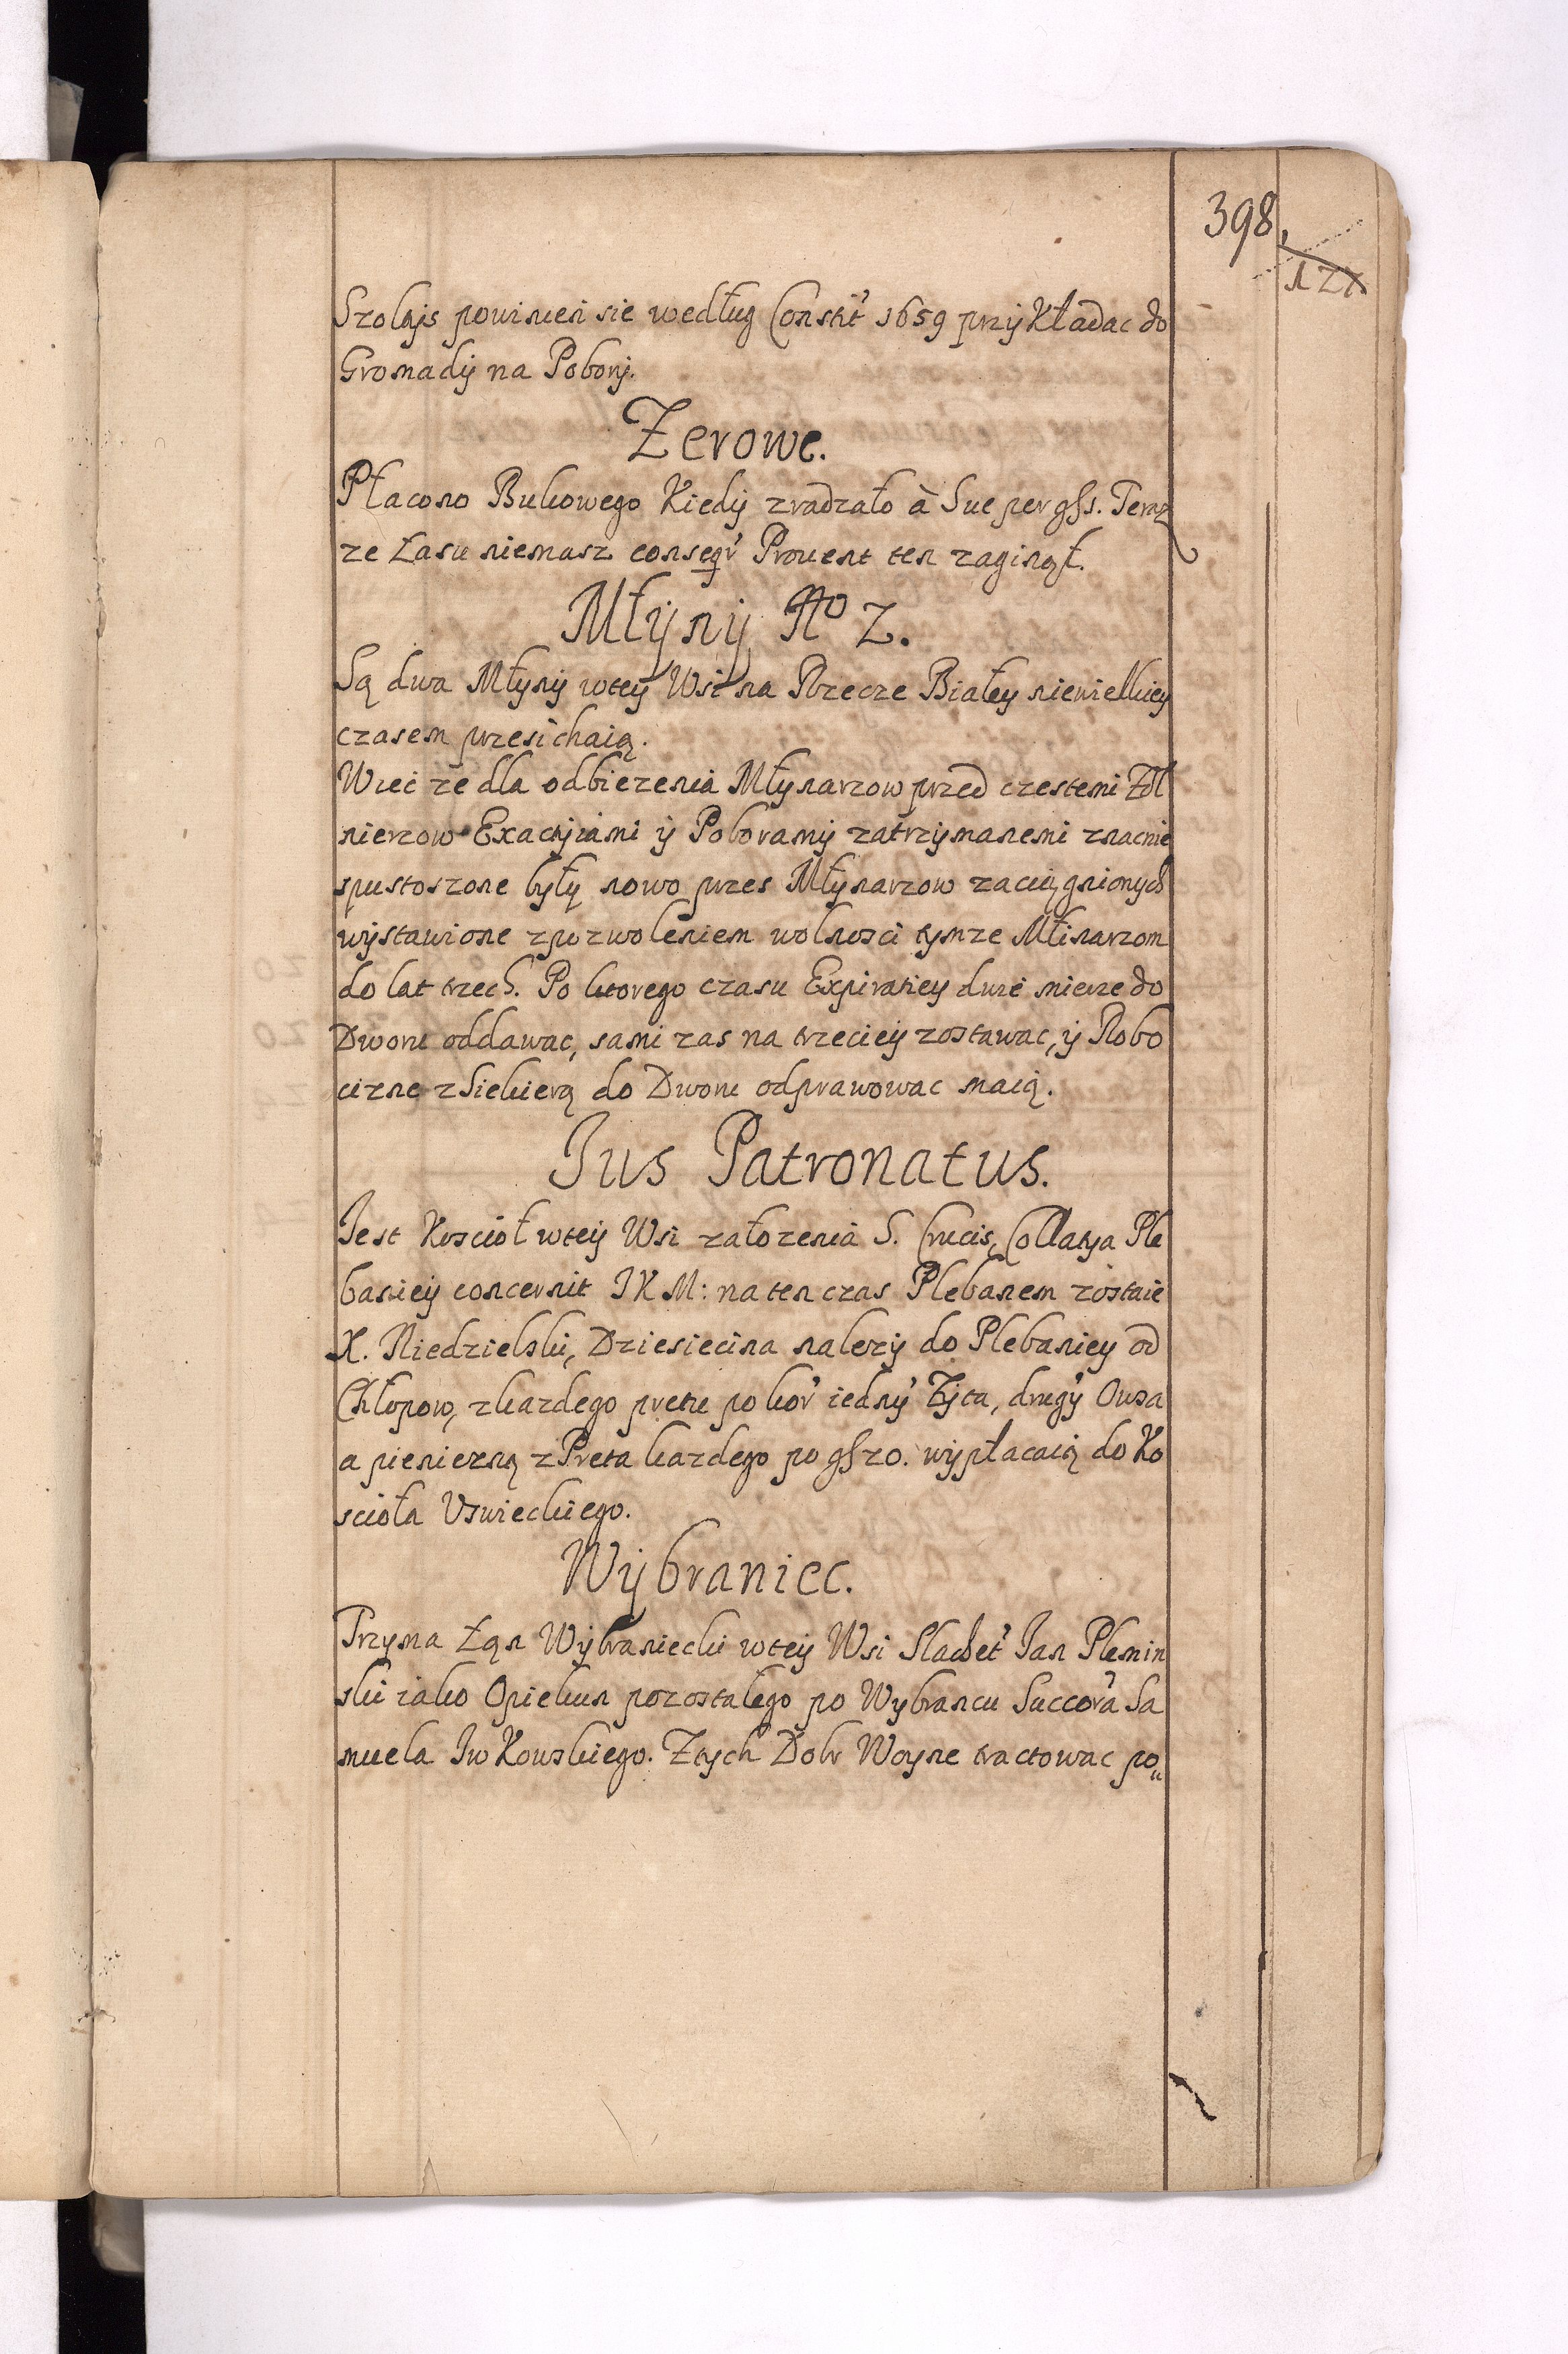 398.
127
Szoltys powinien sie według Constit 1659 przykładac do
Gromady na Pobory.
Zerowe.
Płacono Bukowego Kiedy zradzało à Sue per gss. Teraz
ze Lasu niemasz conseqr Prouent ten zaginął.
Młyny No 2.
Są dwa Młyny wtey Wsi na Rzecze Białey niewielkiey
czasem przesichaią.
Wiec ze dla odbiezenia Młynarzow przed czestemi Zoł
nierzow Exactyiami y Poboramy zatrzymanemi znacnie
spustoszone były nowo przes Młynarzow zaciągnionych
wystawione zpozwoleniem wolnosci tymze Młinarzom
do lat trzech. Po ktorego czasu Expiratiey dwie mierze do
Dworu oddawac, sami zas na trzeciey zostawac, y Robo
cizne zSiekierą do Dworu odprawowac maią.
Jus Patronatus.
Jest Kosciół wtey Wsi załozenia S. Crucis, Collatya Ple
baniey concernit JKM: na ten czas Plebanem zostaie
X. Niedzielski, Dziesiecina nalezy do Plebaniey od
Chłopow, zkazdego pretu po kor iedny Zyta, drugy Owsa
a pieniezną zPreta kazdego po gss 20. wypłacaią do Ko
scioła Uswieckiego.
Wybraniec.
Trzyma Łąn Wybraniecki wtey Wsi Slachet Jan Plemin
ski iako Opiekun pozostałego po Wybrancu Succora Sa
muela Iwkowskiego. Ztych Dobr Woyne tractowac po„